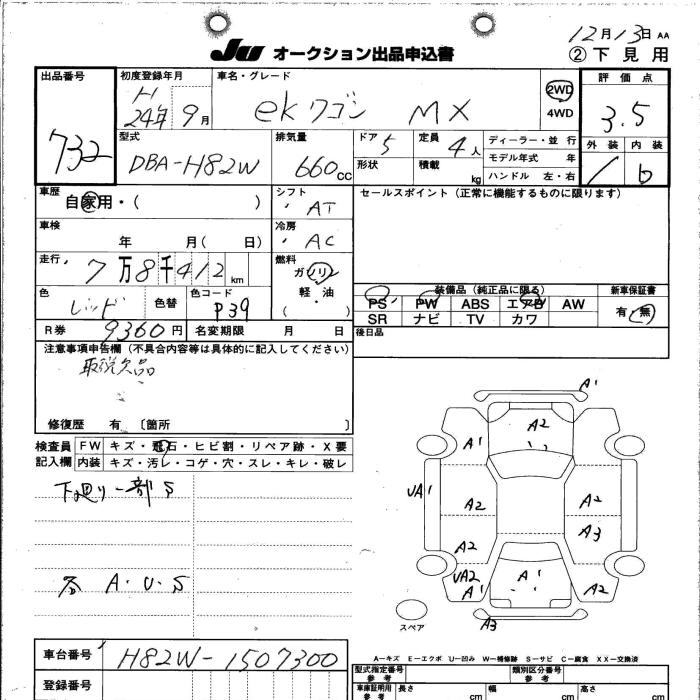 12月13日 AA
JU オークション出品申込書 ② 下見用
出品番号 初度登録年月 車名・グレード 評価点
732 H 24年 9月 ekワゴン MX 2WD 4WD 3.5
型式 排気量 ドア 定員 ディーラー・並行 外装 内装
DBA-H82W 660cc 5 4人 モデル年式 年
形状 積載 kg ハンドル 左・右 b
車歴 シフト セールスポイント(正常に機能するものに限ります)
自家用・( ) AT
車検 冷房
年 月( 日) AC
走行 燃料
7万8千412km ガソリン
軽・油
( )
色 色替 色コード 装備品(純正品に限る) 新車保証書
レッド P39 PS PW ABS エアB AW 有・無
SR ナビ TV カワ
R券 9360円 名変期限 月 日 後日品
注意事項申告欄(不具合内容等は具体的に記入してください)
取説欠品
修復歴 有 〔箇所 〕
検査員 FW キズ・飛石・ヒビ割・リペア跡・X要
記入欄 内装 キズ・汚レ・コゲ・穴・スレ・キレ・破レ
下廻り一部S
A・U・S
A1
A2
A1
UA1 A2 A2
A3
A2
UA2 A1 A1 A2
A3
スペア
A-キズ E-エクボ U-凹み W-補修跡 S-サビ C-腐食 XX-交換済
車台番号 H82W-1507300 型式指定番号 参考 類別区分番号 参考
登録番号 車庫証明用 参考 長さ cm 幅 cm 高さ cm